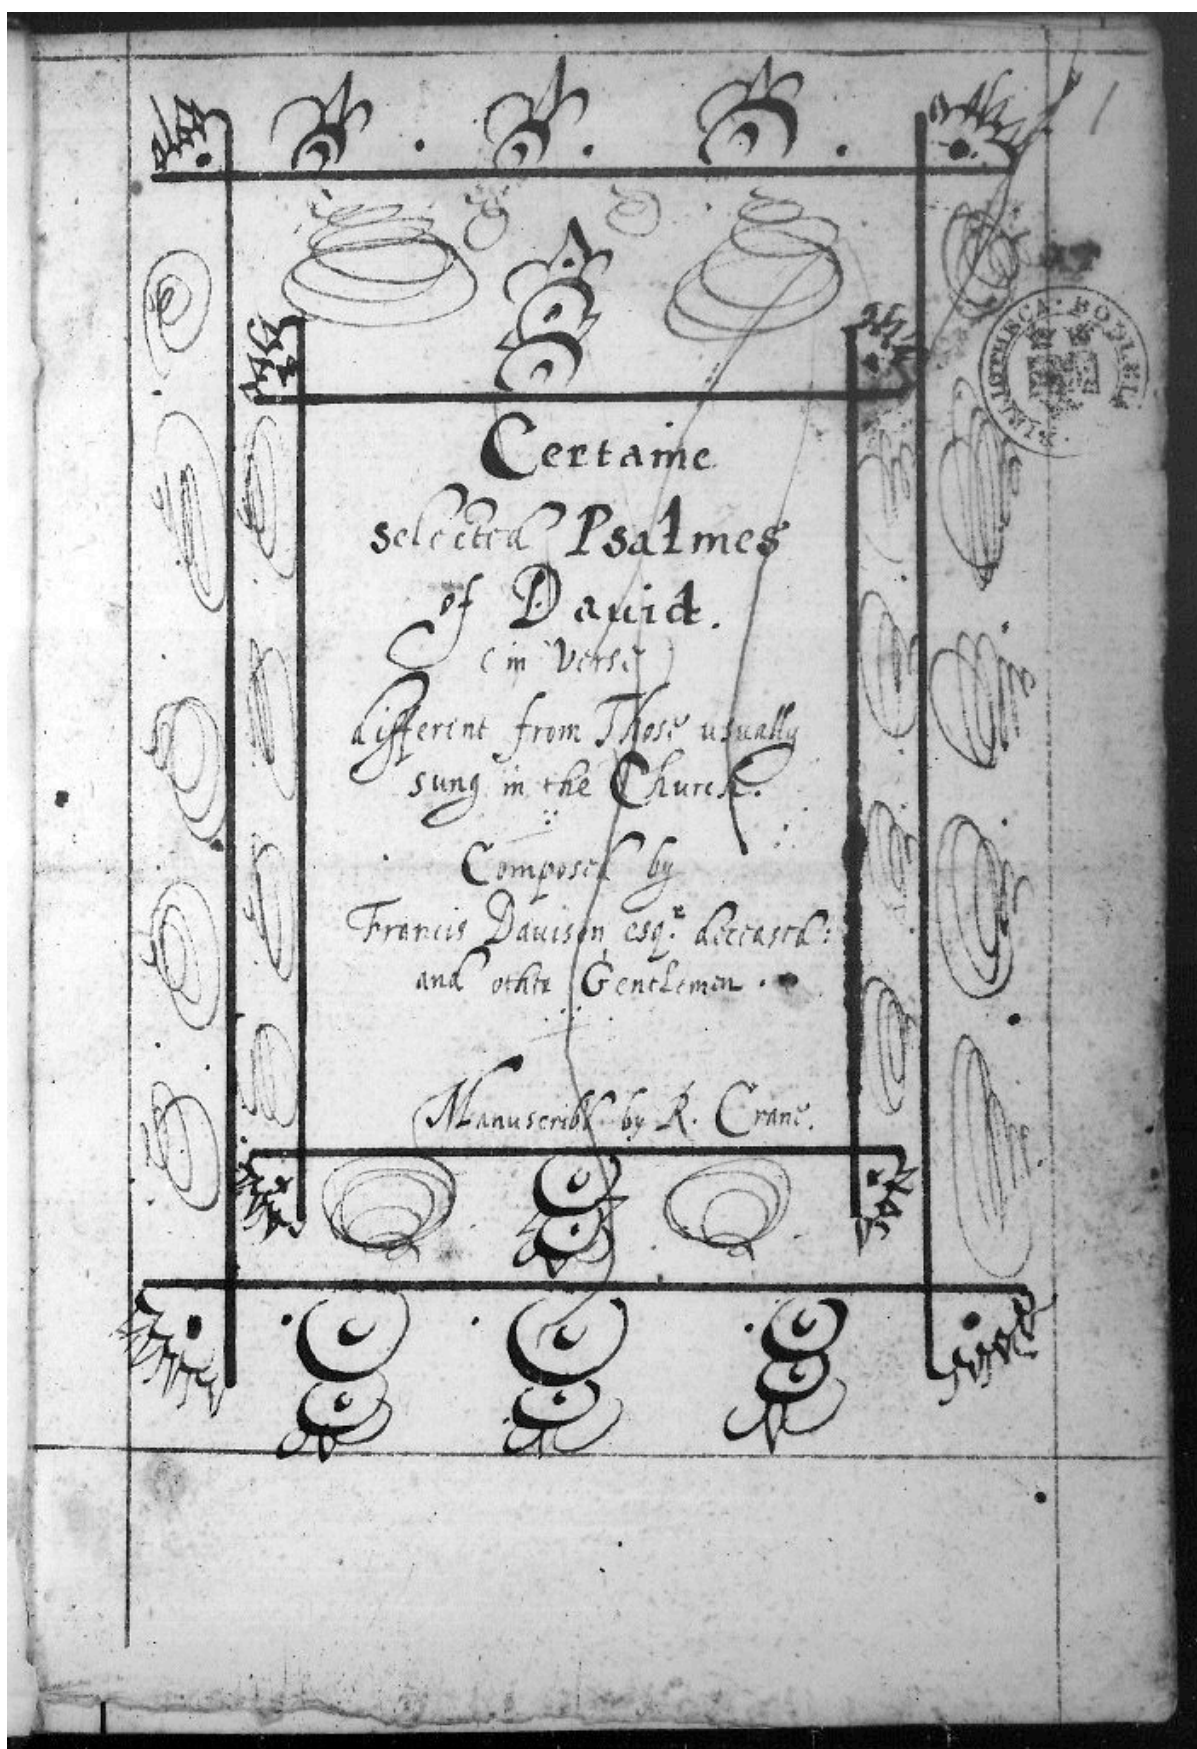 1
BIBLIOTHECA · BODLEIA
Certaine
selected Psalmes
of Dauid.
(in Verse)
different from Those usually
sung in the Church.
Composed by
Francis Dauison, esqr. deceased:
and other Gentlemen.
Manuscribd. by R. Crane.